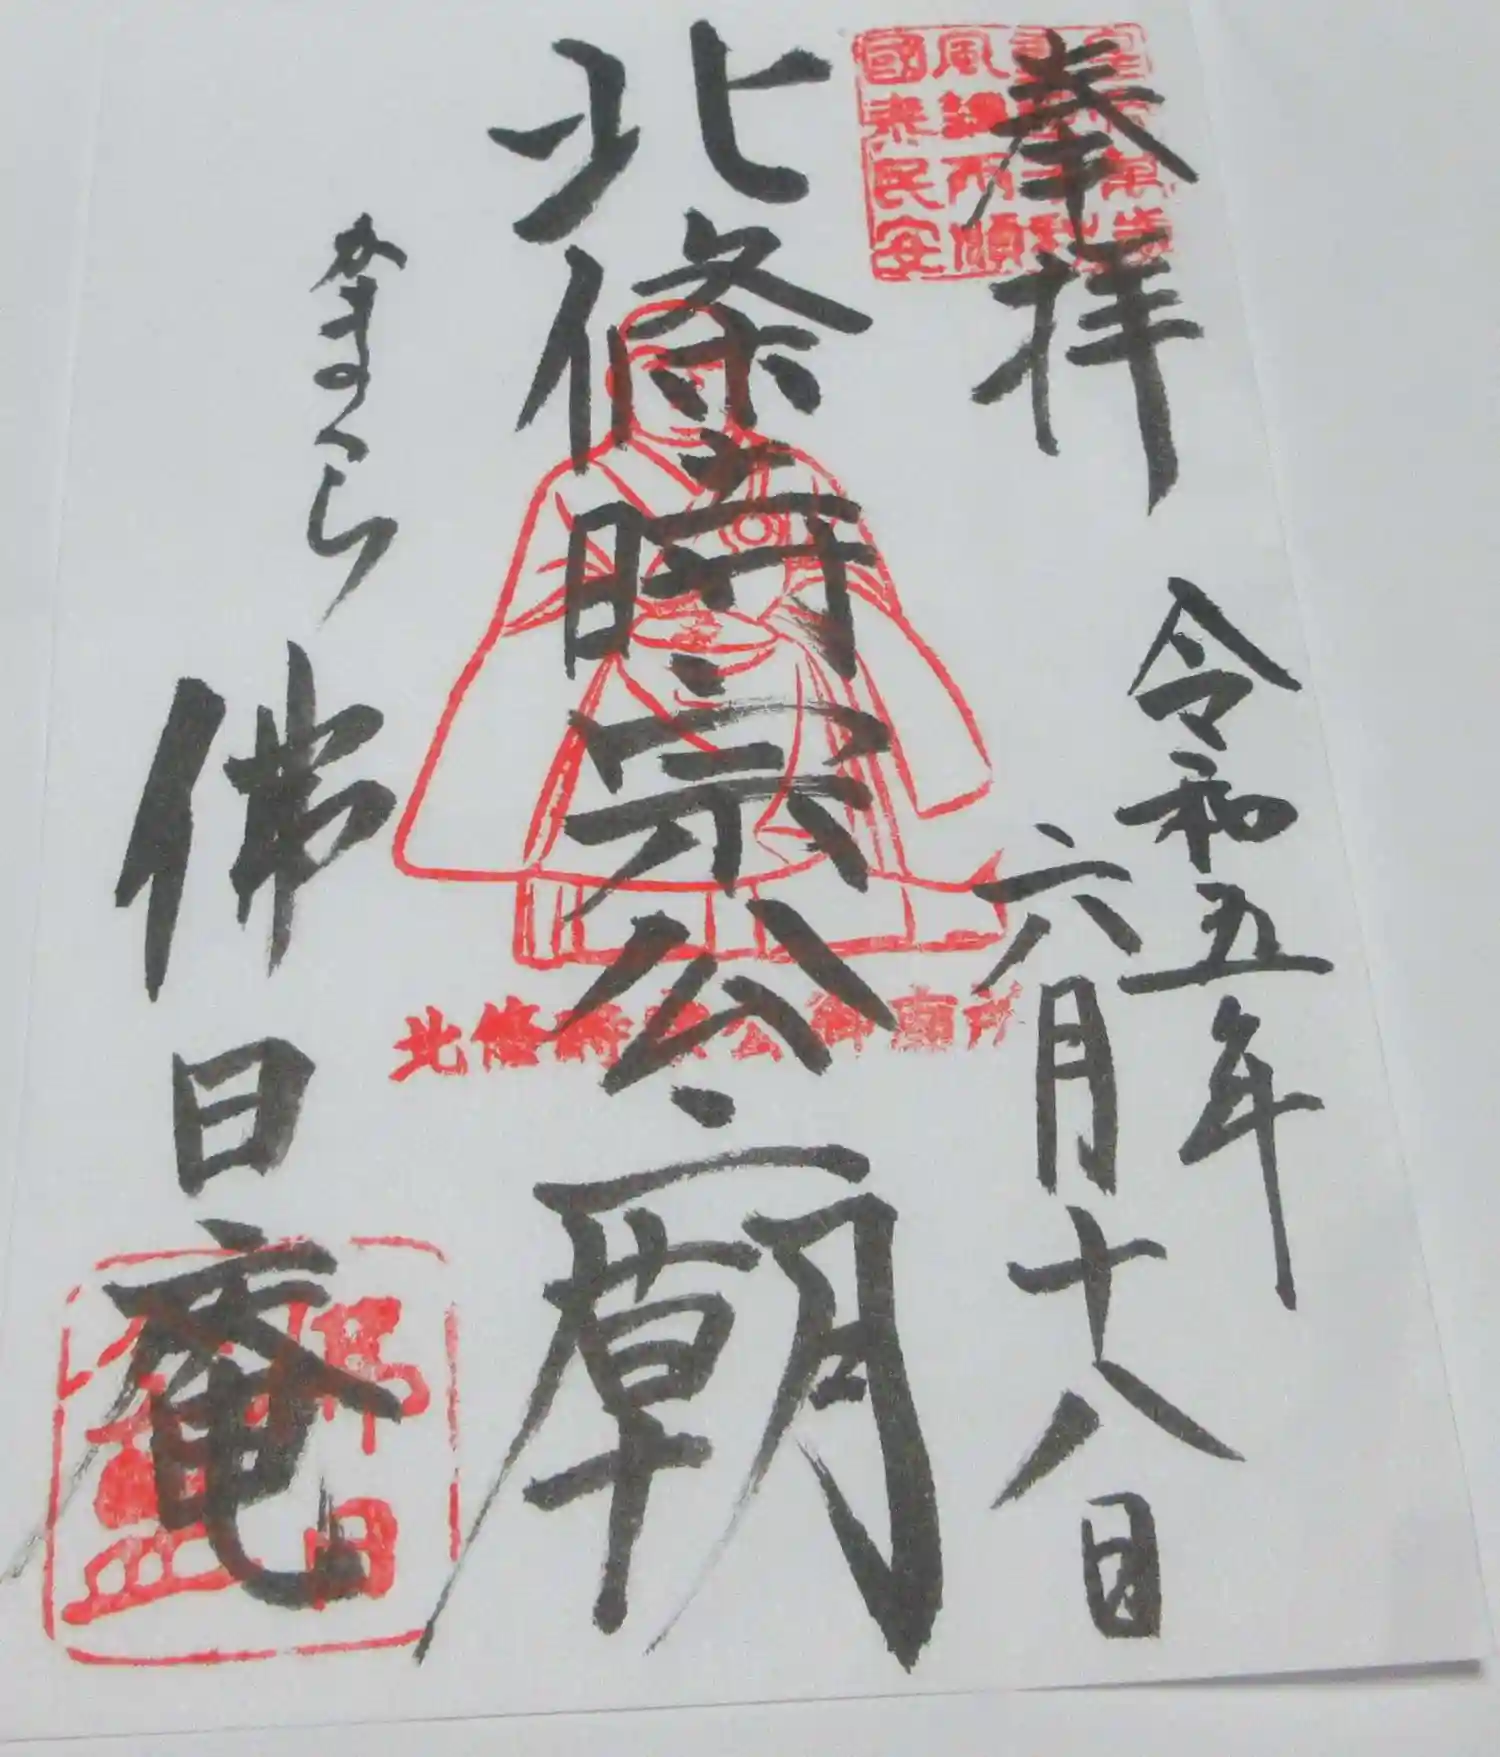 奉拝
令和五年
六月十八日
北條時宗公廟
かまくら
佛日庵
風調雨順
國泰民安
北條時宗公御廟所